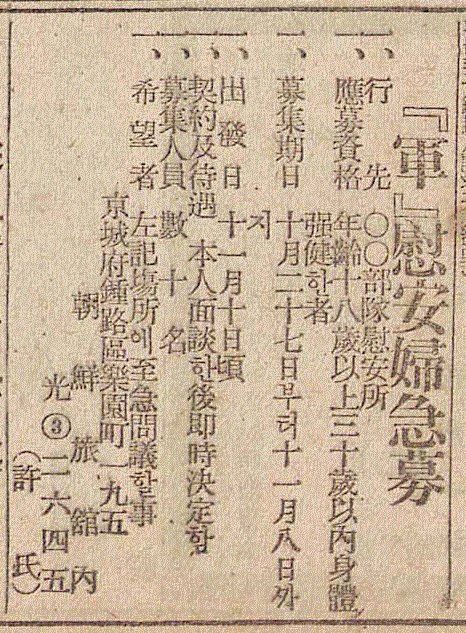 『軍』慰安婦急募
一、行先 〇〇部隊慰安所
一、應募資格 年齡十八歲以上三十歲以內身體
强健한者
一、募集期日 十月二十七日부터十一月八日까
지
一、出發日 十一月十日頃
一、契約及待遇 本人面談한後即時決定함
一、募集人員 數十名
一、希望者 左記場所에至急問議할事
京城府鍾路區樂園町一九五
朝鮮旅舘內
光③二六四五
(許氏)